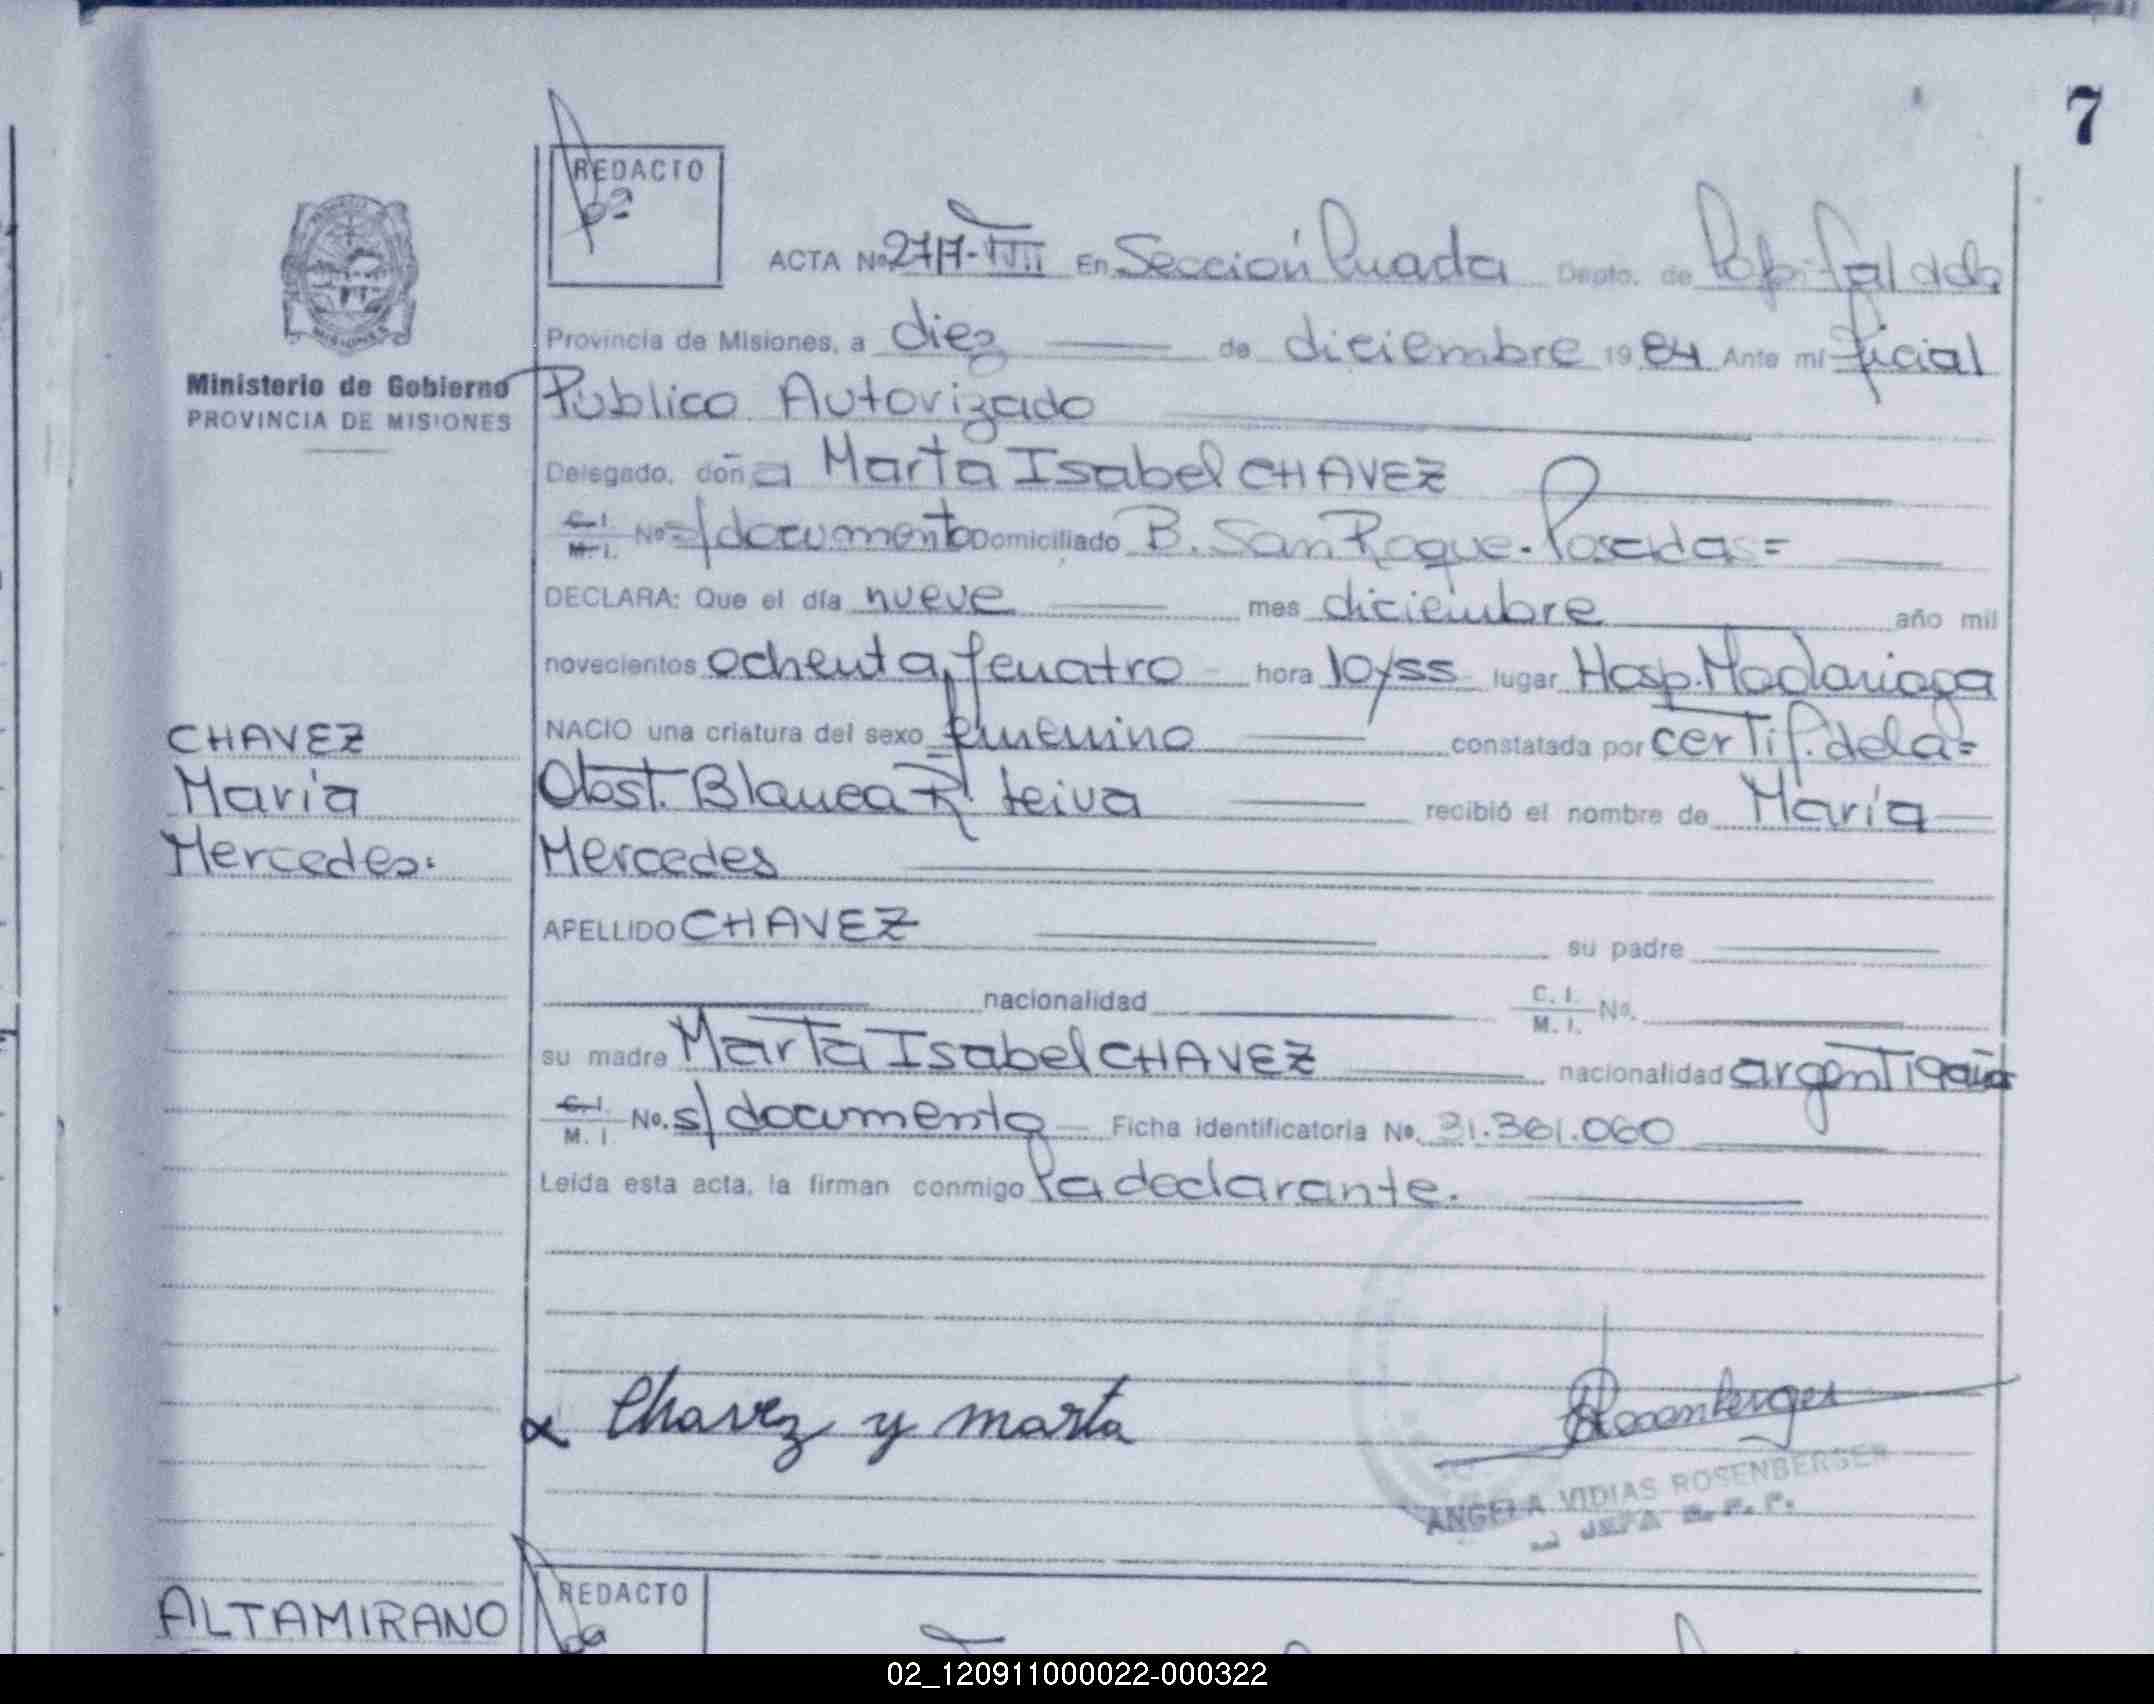 7
REDACTO
ACTA Nº 2717-VIII En Sección Cuarta Depto. de Capital de la
Provincia de Misiones, a diez de diciembre 1984 Ante mi Oficial
Ministerio de Gobierno
PROVINCIA DE MISIONES
Público Autorizado
Delegado, doña Marta Isabel CHAVEZ
C.I. M.I. Nº s/documento Domiciliado B. San Roque. Posadas=
DECLARA: Que el día nueve mes diciembre año mil
novecientos ochenta y cuatro hora 10/55 lugar Hosp. Madariaga
NACIO una criatura del sexo femenino constatada por certif. de la=
CHAVEZ
María
Mercedes.
Obst. Blanca R. Leiva recibió el nombre de María
Mercedes
APELLIDO CHAVEZ su padre
nacionalidad C. I. M. I. No.
su madre Marta Isabel CHAVEZ nacionalidad argentina
C.I. M. I. No. s/documento Ficha identificatoria No. 31.361.060
Leída esta acta, la firman conmigo la declarante.
Chavez y marta
Rosenberger
ANGELA VIDIAS ROSENBERGER
JEFA
ALTAMIRANO
REDACTO
02_120911000022-000322